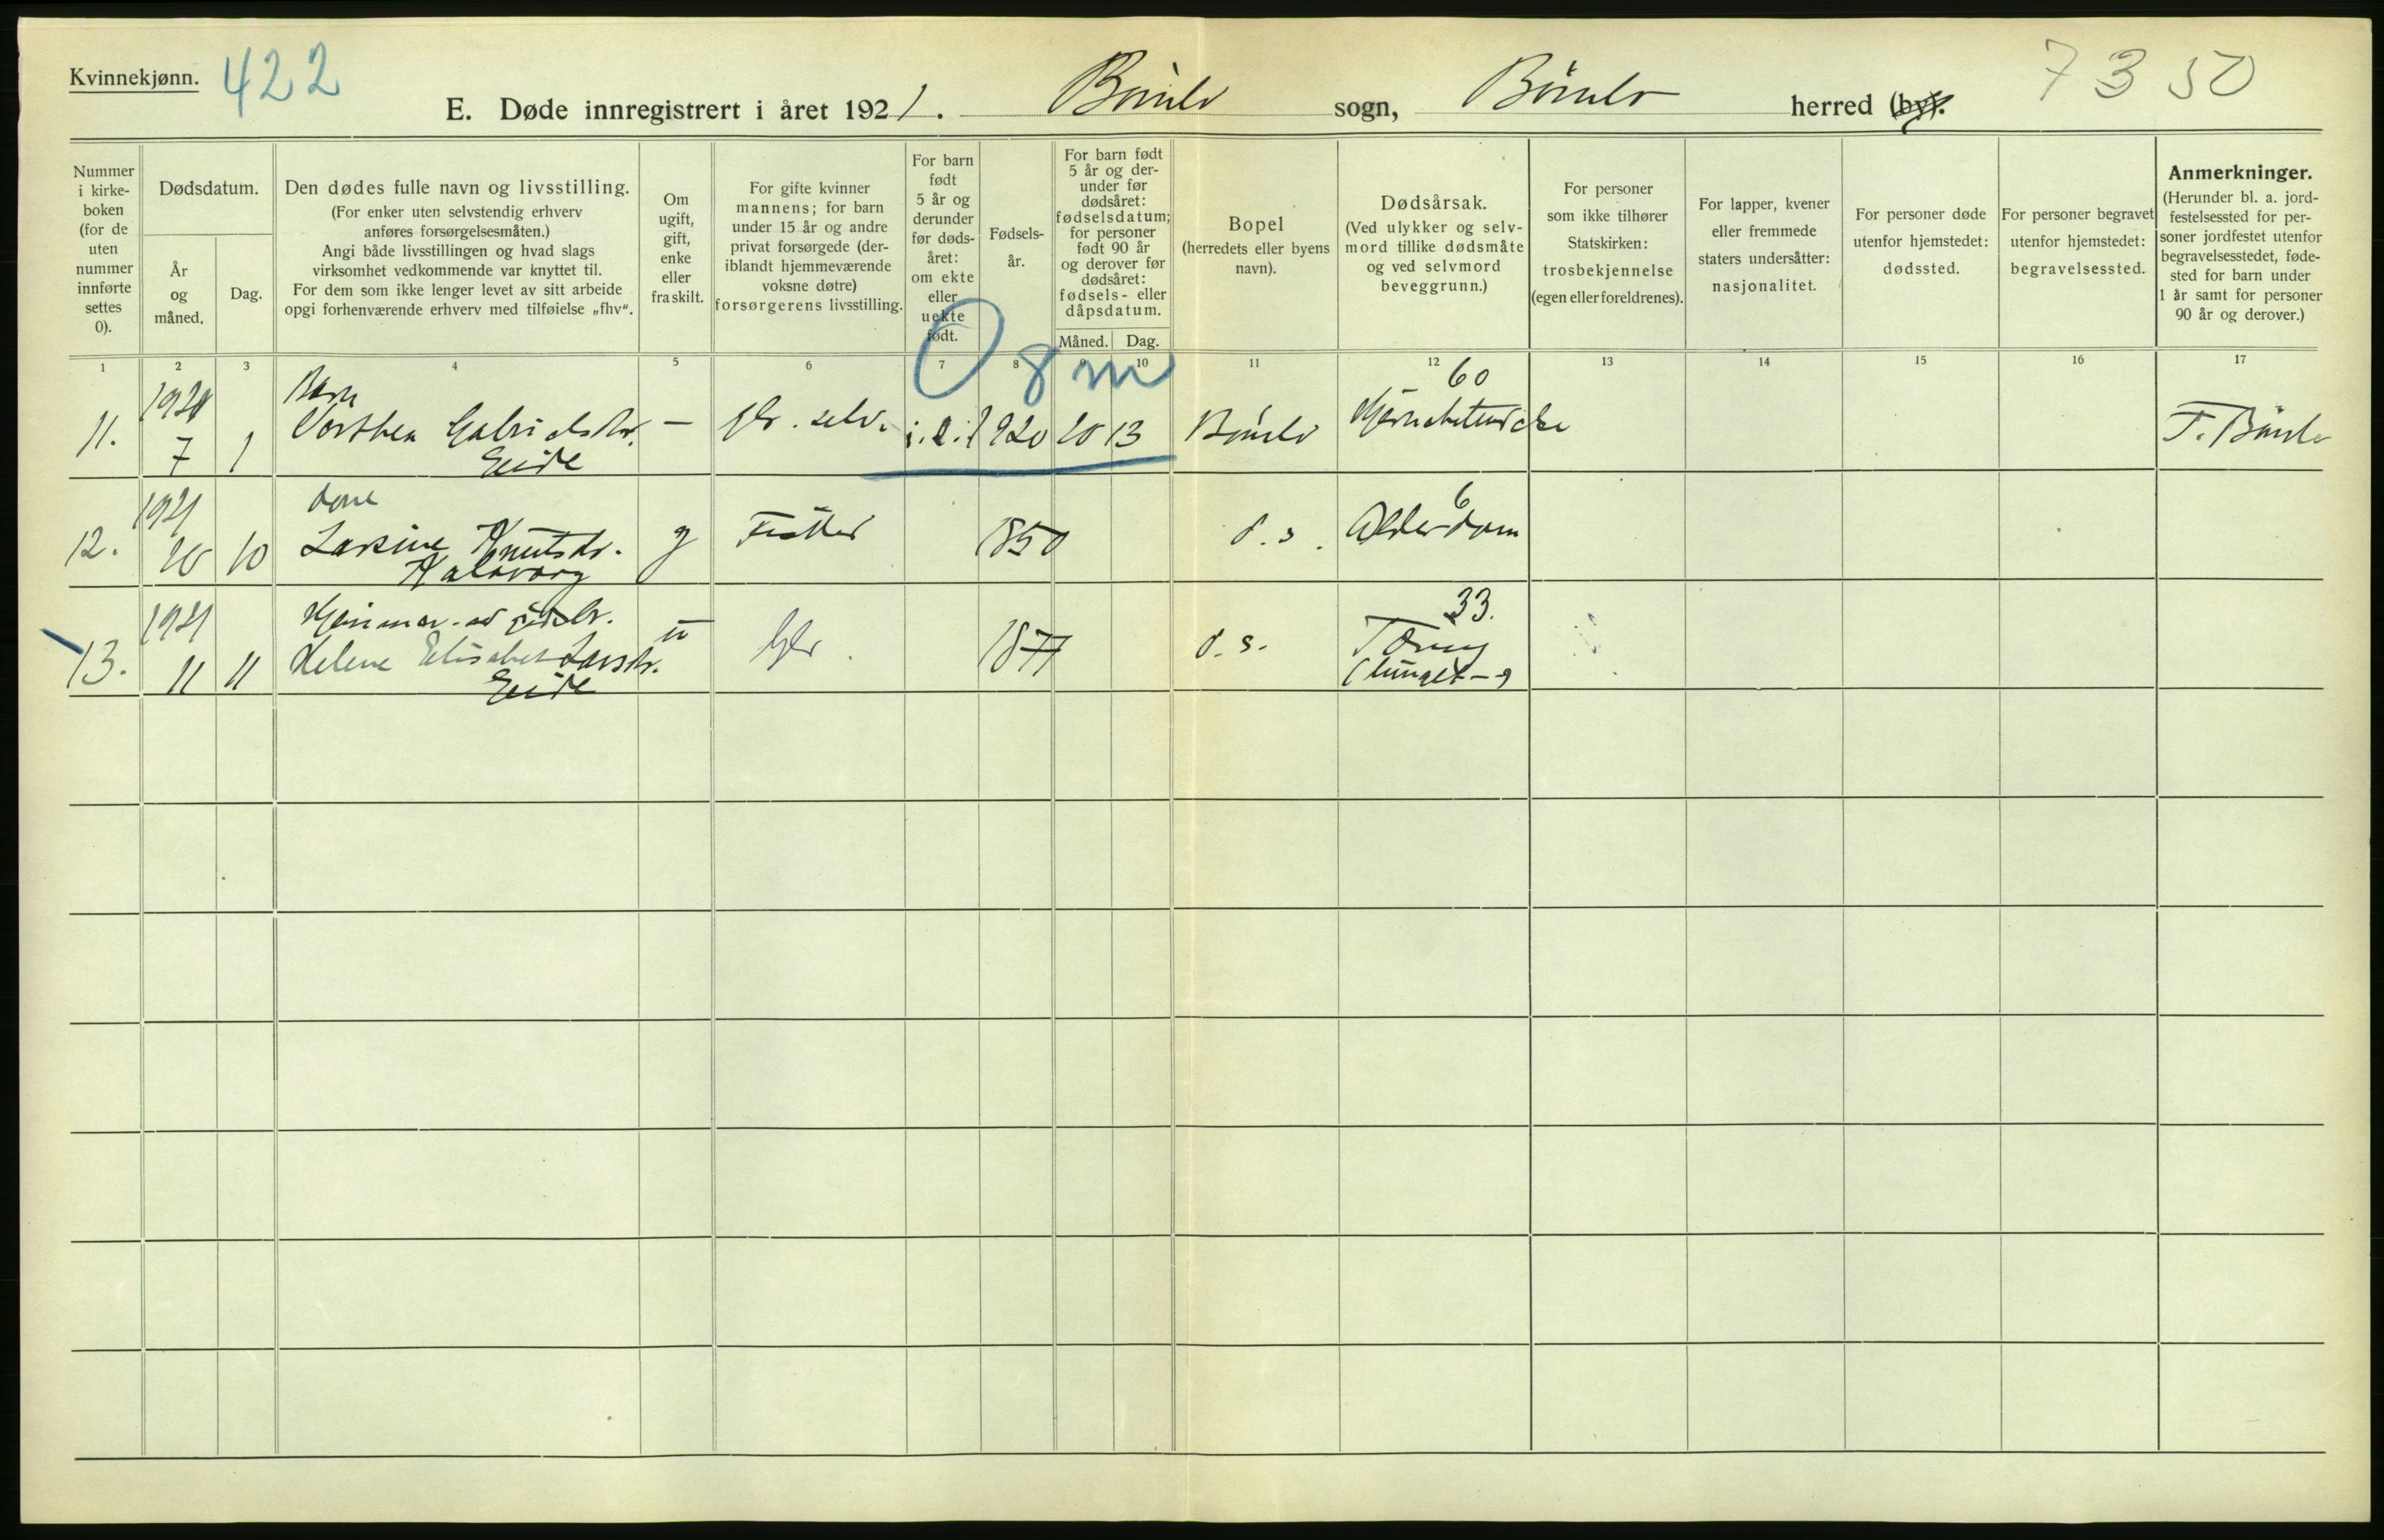 Kvinnekjønn. 422
7 3 50
E. Døde innregistrert i året 1921. Bömlo sogn, Bömlo herred (by).
Nummer i kirkeboken (for de uten nummer innførte settes 0).
Dødsdatum.
År og måned.
Dag.
Den dødes fulle navn og livsstilling.
(For enker uten selvstendig erhverv
anføres forsørgelsesmåten.)
Angi både livsstillingen og hvad slags
virksomhet vedkommende var knyttet til.
For dem som ikke lenger levet av sitt arbeide
opgi forhenværende erhverv med tilføielse „fhv“.
Om ugift, gift, enke eller fraskilt.
For gifte kvinner
mannens; for barn
under 15 år og andre
privat forsørgede (der-
iblandt hjemmeværende
voksne døtre)
forsørgerens livsstilling.
For barn født 5 år og derunder før dødsåret: om ekte eller uekte født.
Fødsels-
år.
For barn født
5 år og der-
under før
dødsåret:
fødselsdatum;
for personer
født 90 år
og derover før
dødsåret:
fødsels- eller
dåpsdatum.
Måned. Dag.
Bopel
(herredets eller byens
navn).
Dødsårsak.
(Ved ulykker og selv-
mord tillike dødsmåte
og ved selvmord
beveggrunn.)
For personer
som ikke tilhører
Statskirken:
trosbekjennelse
(egen eller foreldrenes).
For lapper, kvener
eller fremmede
staters undersåtter:
nasjonalitet.
For personer døde
utenfor hjemstedet:
dødssted.
For personer begravet
utenfor hjemstedet:
begravelsessted.
Anmerkninger.
(Herunder bl. a. jord-
festelsessted for per-
soner jordfestet utenfor
begravelsesstedet, føde-
sted for barn under
1 år samt for personer
90 år og derover.)
1 2 3 4 5 6 7 8 9 10 11 12 13 14 15 16 17
0 8 m
60
1921 Barn
11. 7 1 Dorthea Gabrielsdr. — gbr. selv. 1920 10 13 Bömlo F. Bömlo
Eide
1921 kone 6
12. 10 10 Larsine Knutsdr. g Fisker 1850 d. s. Alderdom
1921 33.
13. 11 11 Helene Elisabet Larsdr. u Gbr. 1877 d. s. Tæring
Eide (lunget-)